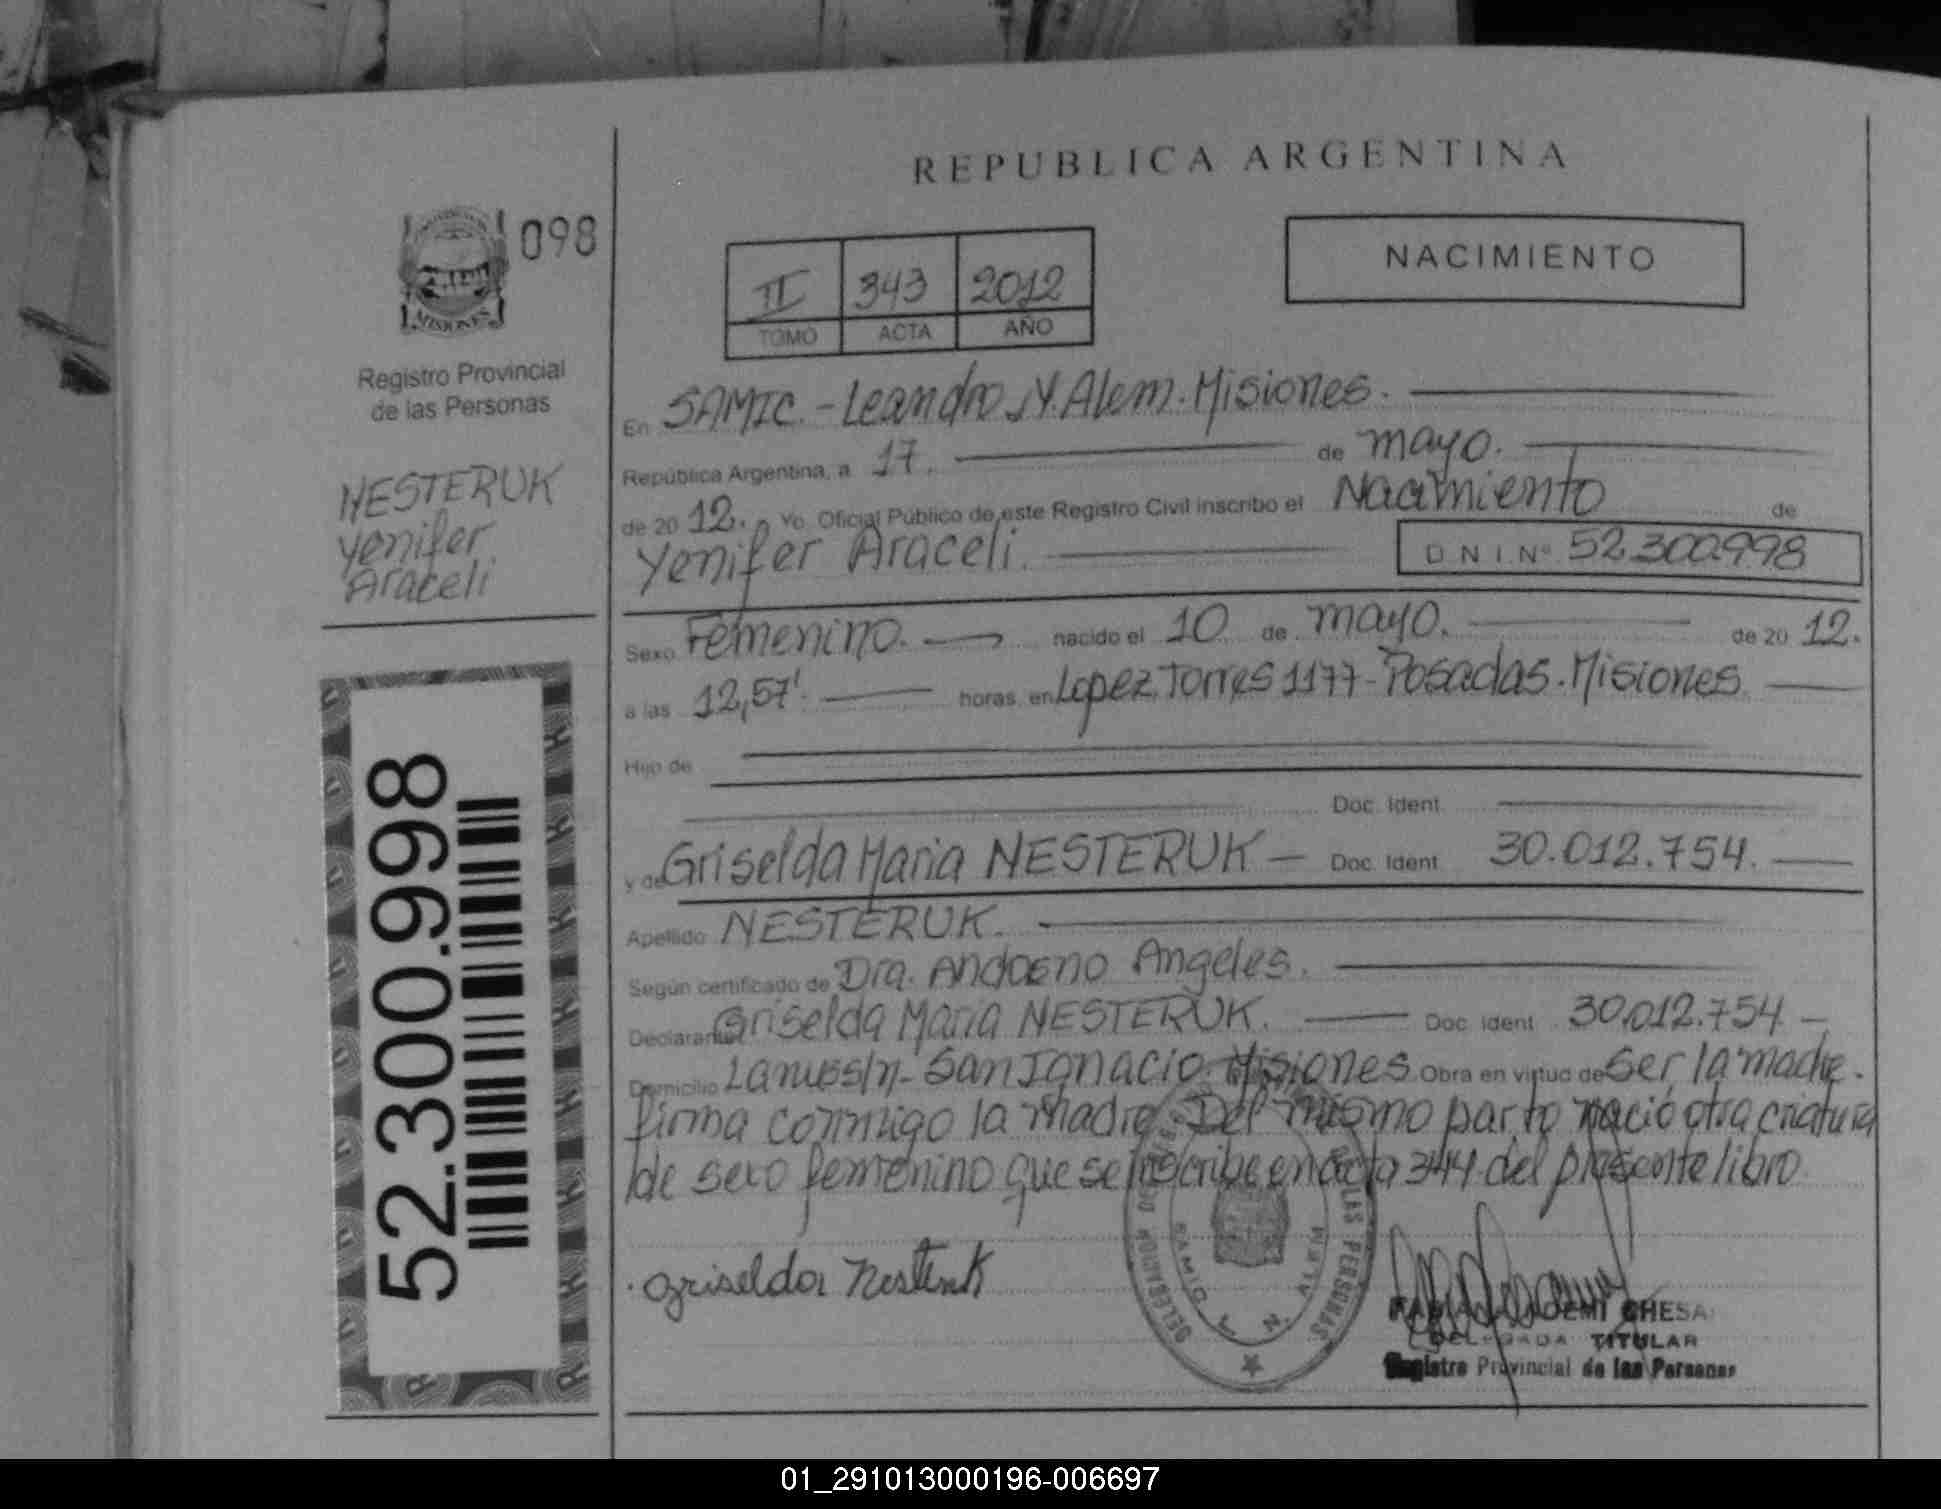 REPUBLICA ARGENTINA
098
MISIONES
Registro Provincial
de las Personas
NESTERUK
Yenifer
Araceli
52.300.998
II 343 2012
TOMO ACTA AÑO
NACIMIENTO
En SAMIC.-Leandro N. Alem. Misiones.
República Argentina, a 17. de mayo.
de 20 12. Yo, Oficial Público de este Registro Civil inscribo el Nacimiento de
Yenifer Araceli. D N I. Nº 52.300.998
Sexo Femenino. nacido el 10 de mayo. de 20 12.
a las 12,57'. horas, en Lopez Torres 1177-Posadas.Misiones
Hijo de
Doc. Ident.
y de Griselda Maria NESTERUK Doc. Ident. 30.012.754.
Apellido NESTERUK.
Según certificado de Dra. Angeles.
Declarante Griselda Maria NESTERUK. Doc. Ident. 30.012.754
Domicilio Lanus s/n-San Ignacio. Misiones. Obra en virtud de Ser la madre.
firma conmigo la madre. Del mismo parto nació otra criatura
de sexo femenino que se inscribe en acta 344 del presente libro.
Griselda Nesteruk
LAS PERSONAS
SAMIC L. N. ALEM
DELEGADA TITULAR
Registro Provincial de las Personas
01_291013000196-006697